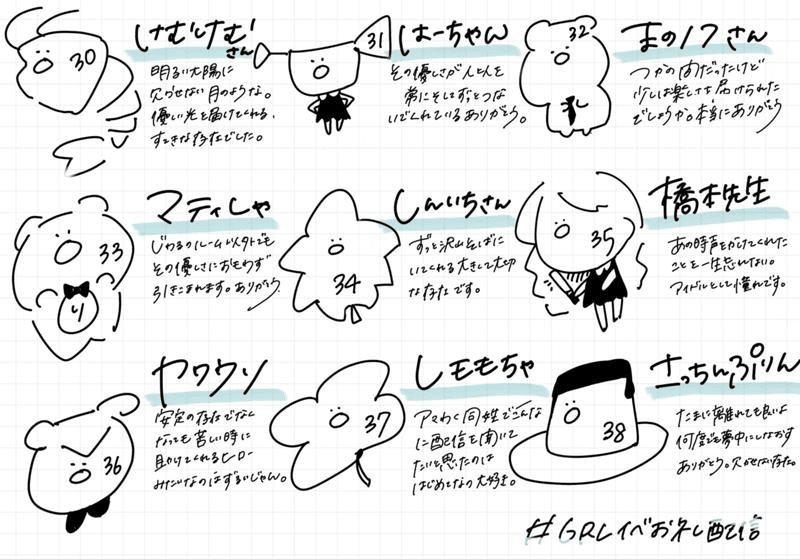 30
けむけむ
さん
明るい太陽に
欠かせない月のような。
優しい光を届けてくれる、
すてきな存在でした。
31
はーちゃん
その優しさが人と人を
常にそしてずっとつな
いでくれているありがとう。
32
まのノフさん
つかの間だったけど
少しは楽しさ届けられた
でしょうか。本当にありがとう
33
り
マティしゃ
じわるのルーム以外でも
その優しさにおもわず
引きこまれます。ありがとう
34
しんいちさん
ずっと沢山そばに
いてくれる大きくて大切
な存在です。
35
橋本先生
あの時声をかけてくれた
ことを一生忘れない。
アイドルとして憧れです。
36
ヤワウソ
安定の存在でなく
なっても苦しい時に
助けてくれるヒーロー
みたいなのはずるいじゃん。
37
しモもちゃ
に配信を聞いて
たいと思ったのは
はじめてなの大好き。
38
さっちんぷりん
たまに離れても良いよ
何度でも夢中にしなおす
ありがとう。欠かせない存在。
#GRレイベお礼配信